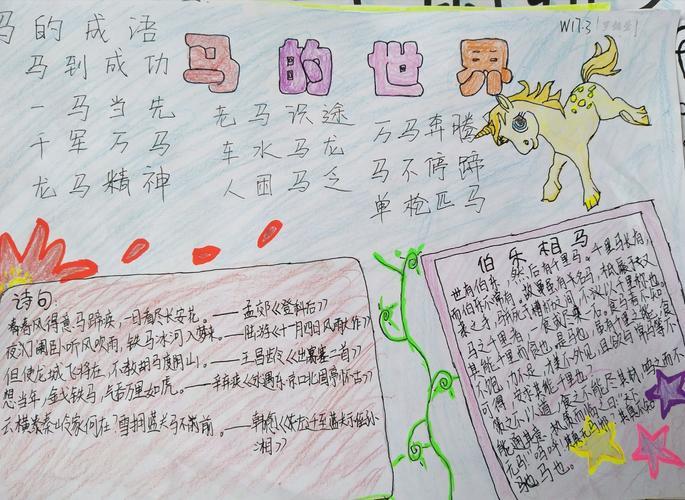 马的成语
马的世界
W17.3
马到成功
一马当先
老马识途
万马奔腾
千军万马
车水马龙
马不停蹄
龙马精神
人困马乏
单枪匹马
诗句:
春风得意马蹄疾,一日看尽长安花。——孟郊《登科后》
夜阑卧听风吹雨,铁马冰河入梦来。——陆游《十一月四日风雨大作》
但使龙城飞将在,不教胡马度阴山。——王昌龄《出塞二首》
想当年,金戈铁马,气吞万里如虎。——辛弃疾《永遇乐·京口北固亭怀古》
云横秦岭家何在?雪拥蓝关马不前。——韩愈《左迁至蓝关示侄孙
湘》
伯乐相马
世有伯乐,然后有千里马。千里马长有,
而伯乐不常有。故虽有名马,祇辱于奴
隶之手,骈死于槽枥之间,不以千里称也。
马之千里者,一食或尽粟一石。食马者不知
其能千里而食也。是马也,虽有千里之能,食
不饱,力不足,才美不外见,且欲与常马等不
可得,安求其能千里也。
策之不以道,食之不能尽其材,鸣之而不
能通其意,执策而临之曰:“天下
无马!”呜呼!其真无马邪?其真不知
马也。